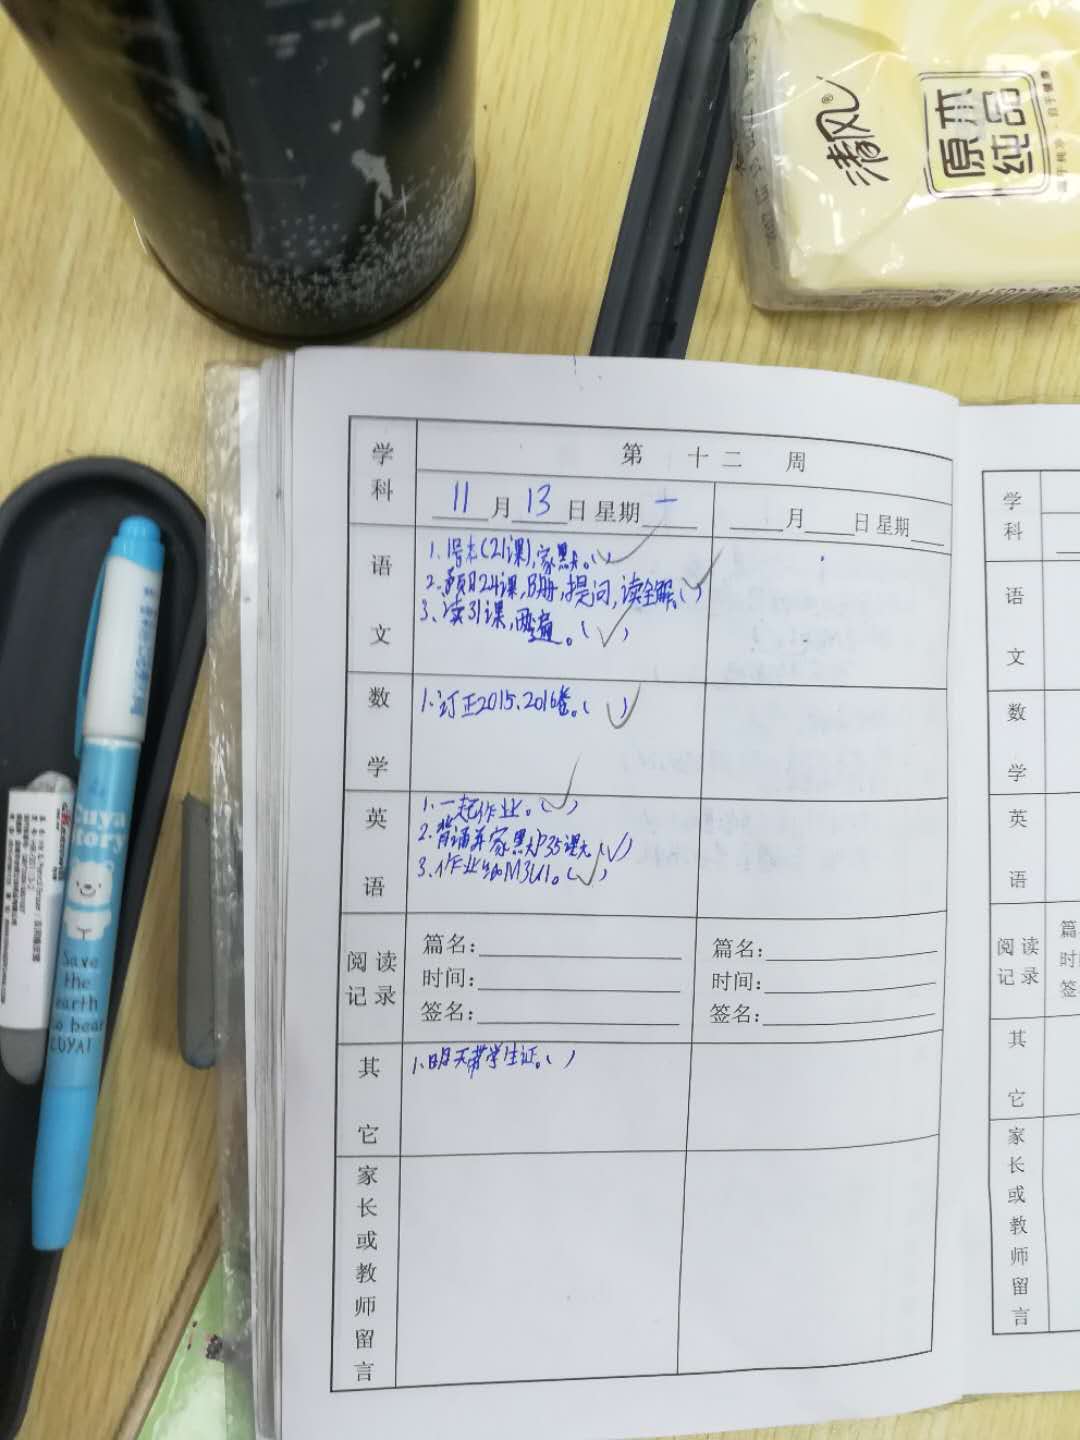 清风®
原木
纯品
学科
第 十二 周
11月13日 星期一
月 日 星期
语文
1、1号本(21课),家默。( )
2、预习24课,B册,提问,读全解( )
3、读31课,两遍。( )
数学
1、订正2015、2016卷。( )
英语
1、一起作业。( )
2、背诵并家默P35课文( )
3、作业纸M3U1。( )
阅读记录
篇名:
时间:
签名:
篇名:
时间:
签名:
其它
1、明天带学生证。( )
家长或教师留言
学科
语文
数学
英语
阅读记录
篇
时
签
其它
家长或教师留言
Save
the
earth
to bear
CUYA!